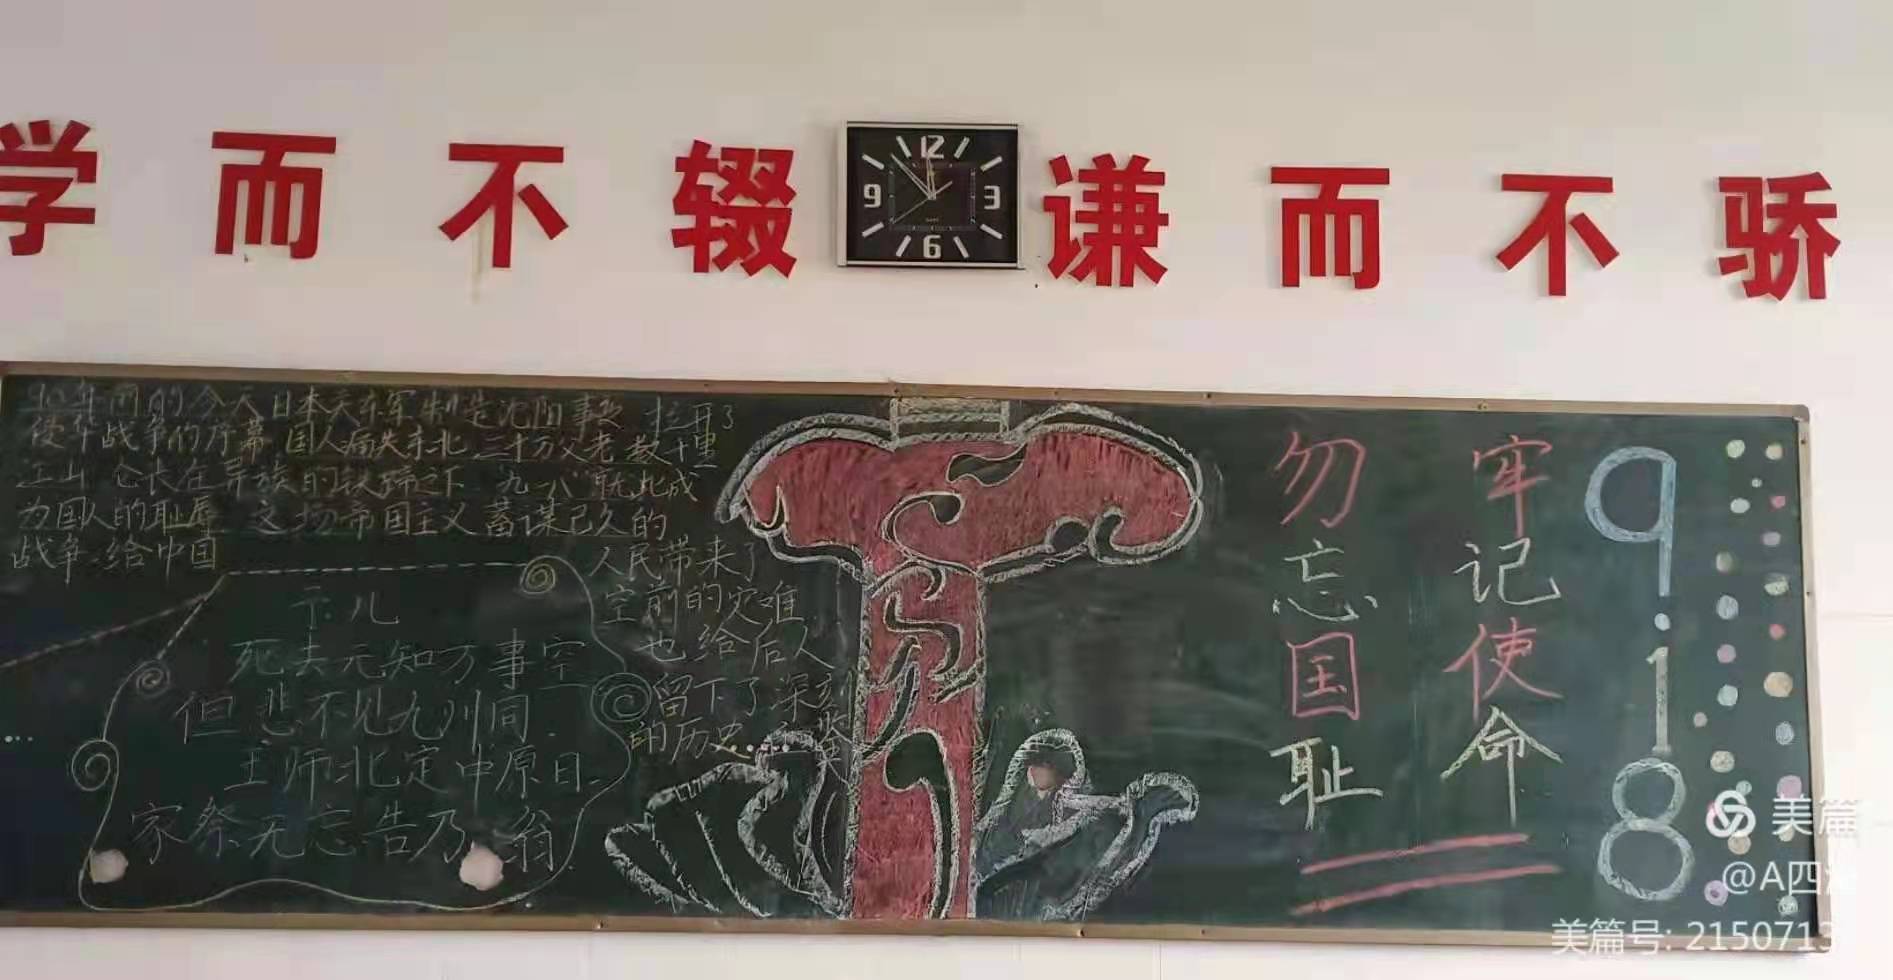 学而不辍
谦而不骄
12
3
6
9
90年前的今天日本关东军制造沈阳事变 拉开了
侵华战争的序幕 国人痛失东北 三千万父老 数千里
江山 在异族的铁蹄之下 九一八"就此成
为国人的耻辱 这场帝国主义蓄谋已久的
战争.给中国
人民带来了
空前的灾难
也给后人
留下了深刻
的历史
示儿
死去元知万事空
但悲不见九州同.
王师北定中原日.
家祭无忘告乃翁
勿忘国耻
牢记使命
9.18
美篇
@A四
美篇号: 2150713